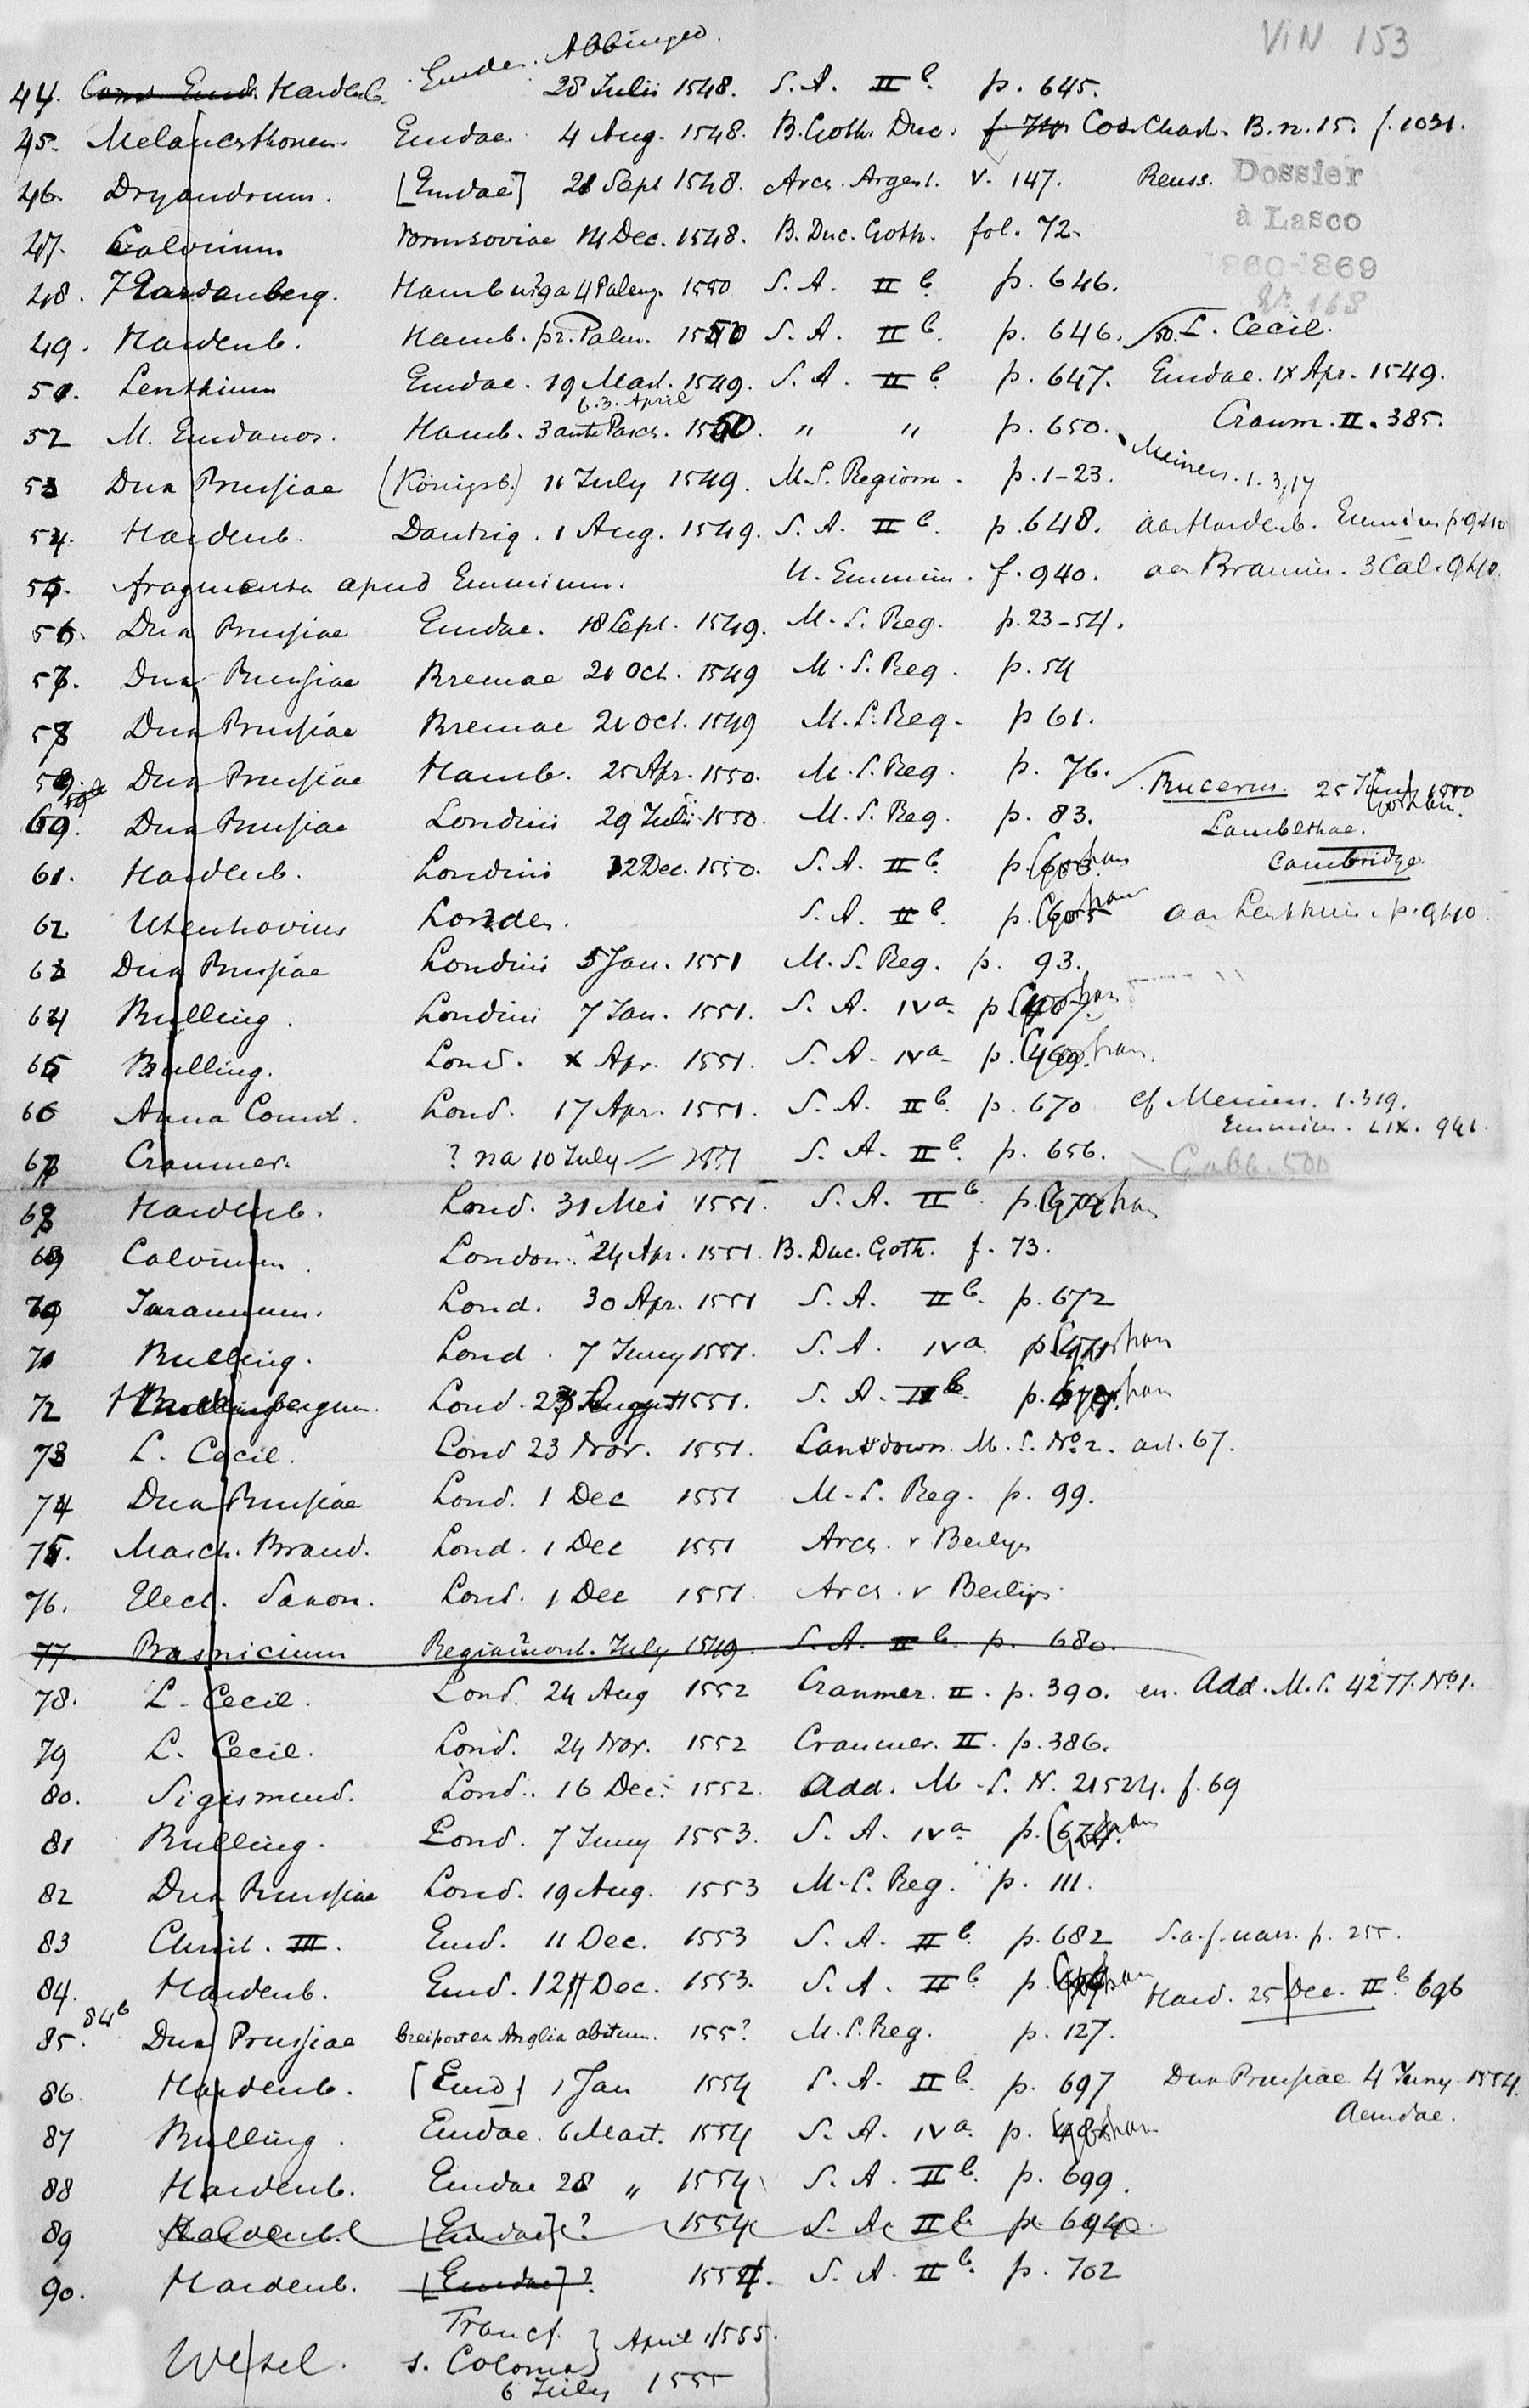 ViN 153
Emden. Abbingво.
44. Hardenb. 28 Julii 1548. S. A. II b. p. 645.
45. Melancsthonem. Emdae. 4 Aug. 1548. B. Goth. Duc. Cod. Chart. B. n. 15. f. 1031.
46. Dryandrum. [Emdae] 21 Sept 1548. Arch. Argent. V. 147. Reuss.
Dossier
à Lasco
1860-1869
No 168
47. Calvinum 14 Dec. 1548. B. Duc. Goth. fol. 72.
48. Hardenberg. Hamburga 4 Palmz. 1550 S. A. II b. p. 646.
49. Hardenb. Hamb. pr. Palm. 1550 S. A. II b. p. 646. 50. L. Cecil.
51. Lenthium Emdae. 19 Mart. 1549. S. A. II b. p. 647. Emdae. IX Apr. 1549.
b. 3. April
52 M. Emdanos. Hamb. 3 ante Pasch. 1550. " " p. 650. Cranm. II. 385.
53 Dux Prussiae (Königsb.) 11 July 1549. M. S. Regiom. p. 1-23. Meiners. 1. 317
54. Hardenb. Dantzig. 1 Aug. 1549. S. A. II b. p. 648. aan Hardenb. Emmius p 940
55. fragmenta apud Emmium. U. Emmius. f. 940. aan Bramin. 3 Cal. 940.
56. Dux Prussiae Emdae. 18 Sept. 1549. M. S. Reg. p. 23-54.
57. Dux Prussiae Bremae 21 Oct. 1549 M. S. Reg. p. 54
58 Dux Prussiae Bremae 21 Oct. 1549 M. S. Reg. p 61.
59. Dux Prussiae Hamb. 25 Apr. 1550. M. S. Reg. p. 76. Bucerus. 25 Juny 1550
Gorham.
60. Dux Prussiae Londini 29 Julii 1550. M. S. Reg. p. 83. Lambethae.
Cambridge.
61. Hardenb. Londini 12 Dec. 1550. S. A. II b. p. 653. Gorham
62 Utenhovius Londen. S. A. II b. p. Gorham aan Lenthius. p. 940.
63 Dux Prussiae Londini 5 Jan. 1551 M. S. Reg. p. 93.
64 Bulling. Londini 7 Jan. 1551. S. A. IV a p. 467. Gorham
65 Bulling. Lond. X Apr. 1551. S. A. IV a p. 469. Gorham.
66 Anna Comit. Lond. 17 Apr. 1551. S. A. II b. p. 670 cf Meiners. 1. 319.
Emmius. LIX. 941.
67 Cranmer. ? na 10 July 1551 S. A. II b. p. 656. Gabb. 500
68 Hardenb. Lond. 31 Mei 1551. S. A. II b. p. Gorham
69 Calvinum. London. 24 Apr. 1551. B. Duc. Goth. f. 73.
70 Lond. 30 Apr. 1551 S. A. II b. p. 672
71 Bulling. Lond. 7 Juny 1551. S. A. IV a p. 471 Gorham
72 Hardenbergum. Lond. 23 August 1551. S. A. II b. p. Gorham
73 L. Cecil. Lond 23 Nov. 1551. Lansdown. M. S. No 2. art. 67.
74 Dux Prussiae Lond. 1 Dec 1551 M. S. Reg. p. 99.
75. March. Brand. Lond. 1 Dec 1551 Arch. v Berlyn
76. Elect. Saxon. Lond. 1 Dec 1551. Arch. v Berlijn
77 Basnicium Regiomont. July 1549. S. A. II b. p. 680.
78. L. Cecil. Lond. 24 Aug 1552 Cranmer. II. p. 390. en. Add. M. S. 4277. No 1.
79 L. Cecil. Lond. 24 Nov. 1552 Cranmer. II. p. 386.
80. Sigismund. Lond. 16 Dec. 1552. Add. M. S. N. 21524. f. 69
81 Bulling. Lond. 7 Juny 1553. S. A. IV a p. 674. Gorham
82 Dux Prussiae Lond. 19 Aug. 1553 M. S. Reg. p. 111.
83 Christ. III. Emd. 11 Dec. 1553 S. A. II b. p. 682 S. a. f. narr. p. 255.
84. Hardenb. Emd. 12 Dec. 1553. S. A. II b. p. Gorham Hard. 25 Dec. II b. 696
84b
85. Dux Prussiae brei post ex Anglia abitum. 155? M. S. Reg. p. 127.
86. Hardenb. [Emd] 1 Jan 1554 S. A. II b. p. 697 Dux Prussiae 4 Juny 1554.
Aemdae.
87 Bulling. Emdae. 6 Mart. 1554 S. A. IV a. p. Gorham
88 Hardenb. Emdae 28 " 1554 S. A. II b. p. 699.
89 Hardenb. [Emdae]? 1554 S. A. II b. p. 694
90. Hardenb. [Emdae]? 1554. S. A. II b. p. 702
Francf. } April 1555.
Wesel. s. Colonia
6 July 1555